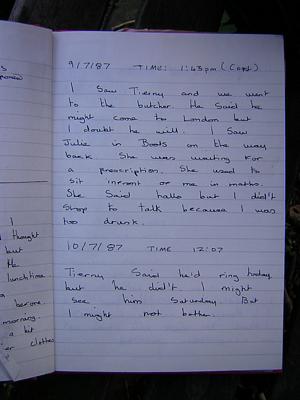 s
I
thought
but
He
lunchtime
a
before.
morning.
a bit
er clothes
9/7/87 TIME: 1:43pm (Capt)
I Saw Tierny and we went
to the butcher. He Said he
might come to London but
I doubt he will. I Saw
Julie in Boots on the way
back. She was waiting for
a prescription. She used to
sit infront or me in maths.
She Said hallo but I did't
Stop to talk because I was
too drunk.
10/7/87 TIME 12:07
Tierny Said he'd ring today
but he did't I might
see him Saturday But
I might not bother.